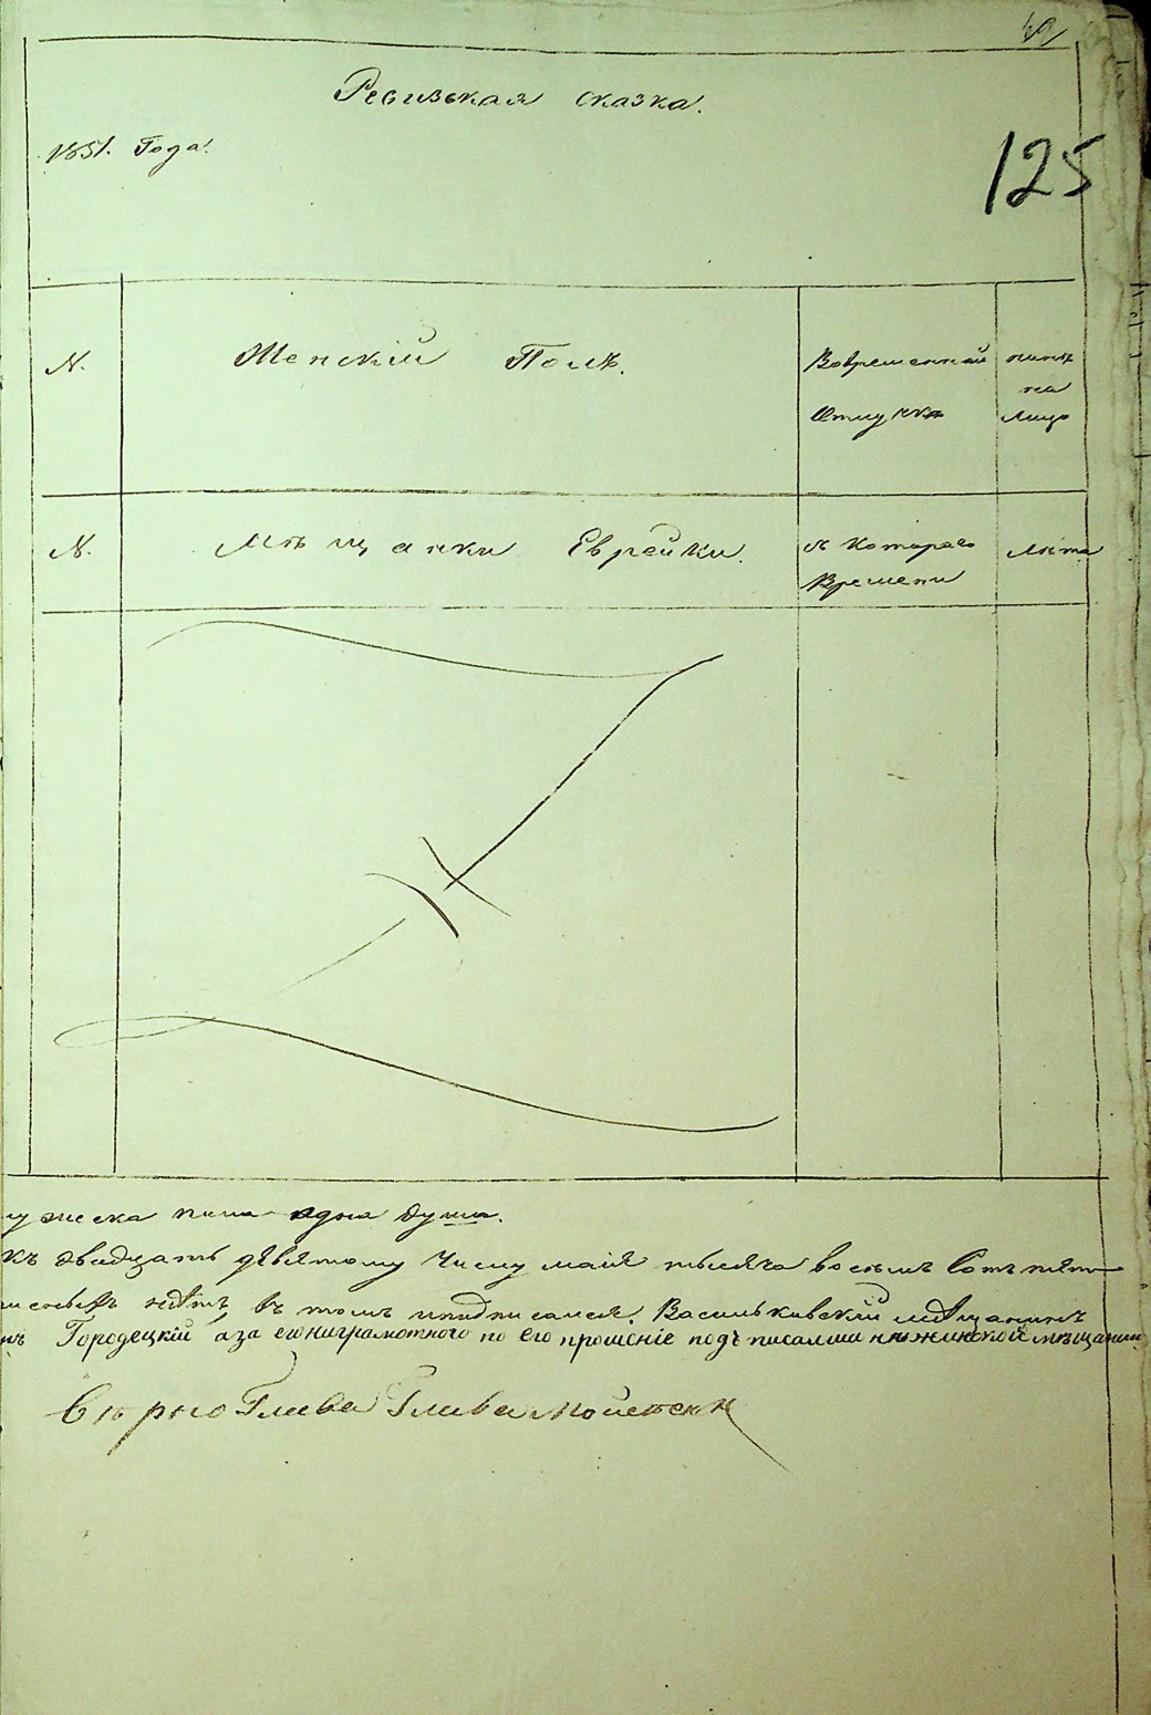 49
Ревизская сказка.
1851. Года.
125
N. Женскій Полъ. Вовременной нынѣ
на
Отлучкѣ лицо
N. Мѣщанки Еврейки. съ Котораго Лѣта
Времени
ужеска пола одна душа.
къ двадцать девятому числу маія тысяча восемъ Сотъ пять
нѣтъ, въ томъ и подписался. Васильковскій мѣщанинъ
нъ Городецкій а за его ниграмотного по его прошеніе подъписалши мѣщанин